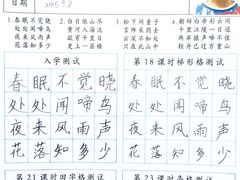 日期 2015.9.8
1.春眠不觉晓
处处闻啼鸟
夜来风雨声
花落知多少
2.白日依山尽
黄河入海流
欲穷千里目
更上一层楼
3.松下问童子
言师采药去
只在此山中
云深不知处
千里江陵一日还
入学测试
春眠不觉晓
处处闻啼鸟
夜来风雨声
花落知多少
第18课时梯形格测试
春眠不觉晓
处处闻啼鸟
夜来风雨声
花落知多少
第21课时田字格测试
第23课时条格测试